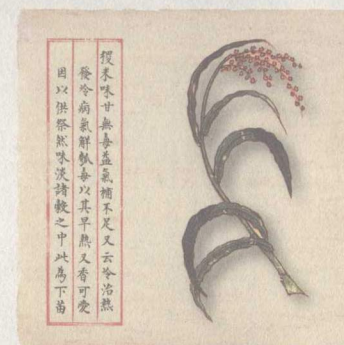 稷米味甘無毒益氣補不足又云冷治熱
發冷病氣解瓠毒以其早熟又香可愛
因以供祭然味淡諸穀之中此為下苗